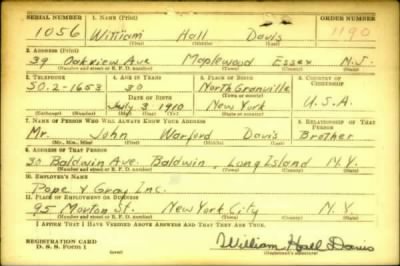 SERIAL NUMBER 1. NAME (Print) ORDER NUMBER
1056 William Hall Davis 1190
(First) (Middle) (Last)
2. ADDRESS (Print)
39 Oakview Ave Maplewood Essex N.J.
(Number and street or R. F. D. number) (Town) (County) (State)
3. TELEPHONE 4. AGE IN YEARS 5. PLACE OF BIRTH 6. COUNTRY OF CITIZENSHIP
SO.2-1653 30 North Granville
DATE OF BIRTH (Town or county)
July 3 1910 New York U.S.A.
(Exchange) (Number) (Mo.) (Day) (Yr.) (State or country)
7. NAME OF PERSON WHO WILL ALWAYS KNOW YOUR ADDRESS 8. RELATIONSHIP OF THAT PERSON
Mr. John Warford Davis Brother
(Mr., Mrs., Miss) (First) (Middle) (Last)
9. ADDRESS OF THAT PERSON
30 Baldwin Ave. Baldwin, Long Island N.Y.
(Number and street or R. F. D. number) (Town) (County) (State)
10. EMPLOYER'S NAME
Pope & Gray Inc.
11. PLACE OF EMPLOYMENT OR BUSINESS
95 Morton St. New York City N.Y.
(Number and street or R. F. D. number) (Town) (County) (State)
I AFFIRM THAT I HAVE VERIFIED ABOVE ANSWERS AND THAT THEY ARE TRUE.
REGISTRATION CARD
D. S. S. Form 1 William Hall Davis
(Registrant's signature)